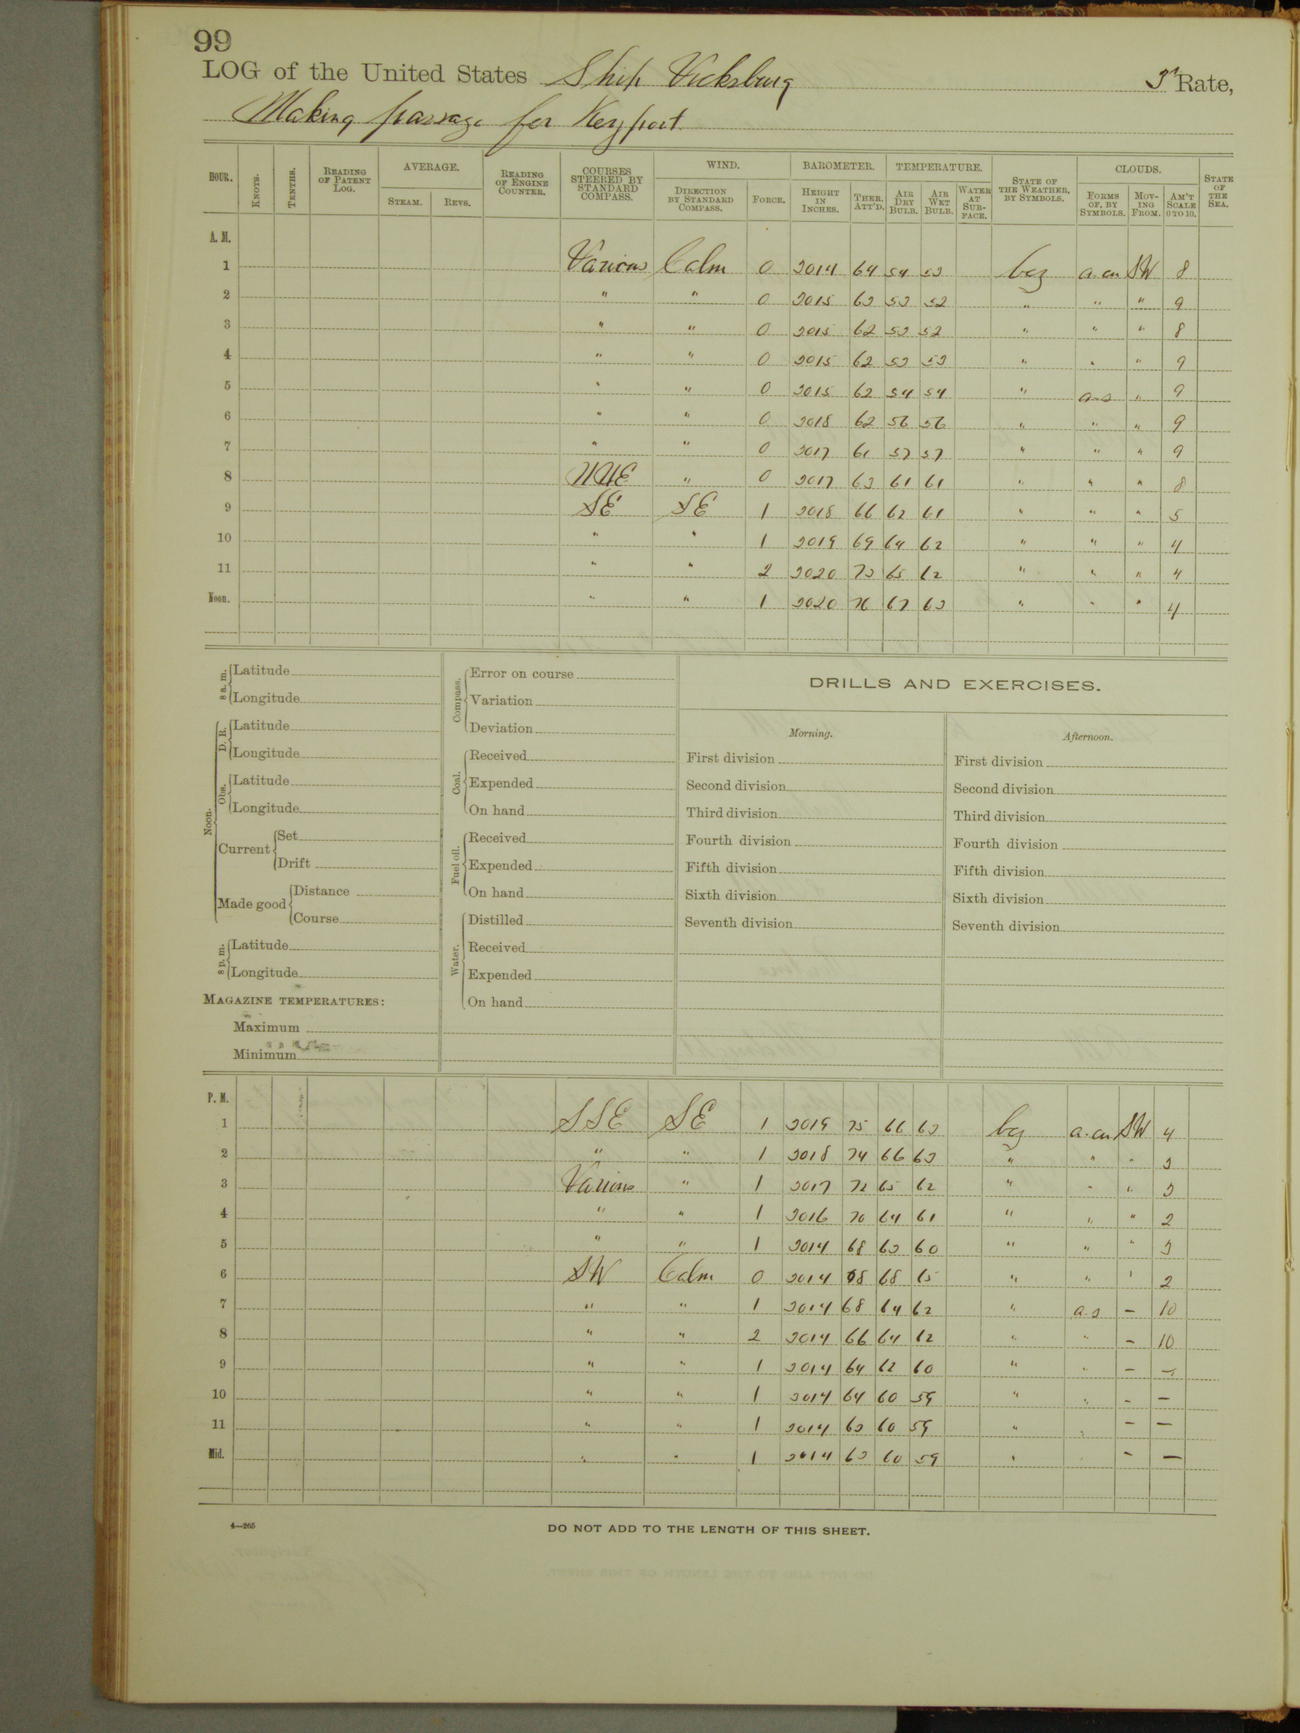 99
LOG of the United States Ship Vicksburg 3d Rate,
Making passage for Keyport
HOUR. KNOTS. TENTHS. READING OF PATENT LOG. AVERAGE. STEAM. REVS. READING OF ENGINE COUNTER. COURSES STEERED BY STANDARD COMPASS. WIND. DIRECTION BY STANDARD COMPASS. FORCE. BAROMETER. HEIGHT IN INCHES. THER. ATT'D. TEMPERATURE. AIR DRY BULB. AIR WET BULB. WATER AT SURFACE. STATE OF THE WEATHER, BY SYMBOLS. CLOUDS. FORMS OF, BY SYMBOLS. MOVING FROM. AM'T SCALE 0 TO 10. STATE OF THE SEA.
A. M.
1 Various Calm 0 3014 64 54 53 bcz a.cu SW 8
2 " " 0 3015 63 53 52 " " " 9
3 " " 0 3015 62 53 52 " " " 8
4 " " 0 3015 62 53 53 " " " 9
5 " " 0 3015 62 54 54 " a-s " 9
6 " " 0 3018 62 56 56 " " " 9
7 " " 0 3017 61 57 57 " " " 9
8 NNE " 0 3017 63 61 61 " " " 8
9 SE SE 1 3018 66 62 61 " " " 5
10 " " 1 3019 69 64 62 " " " 4
11 " " 2 3020 73 65 62 " " " 4
Noon. " " 1 3020 76 67 63 " " " 4
8 a. m. Latitude
Longitude
Noon. D. R. Latitude
Longitude
Obs. Latitude
Longitude
Current Set
Drift
Made good Distance
Course
8 p. m. Latitude
Longitude
MAGAZINE TEMPERATURES:
Maximum
Minimum
Compass. Error on course
Variation
Deviation
Coal. Received
Expended
On hand
Fuel oil. Received
Expended
On hand
Water. Distilled
Received
Expended
On hand
DRILLS AND EXERCISES.
Morning.
First division
Second division
Third division
Fourth division
Fifth division
Sixth division
Seventh division
Afternoon.
First division
Second division
Third division
Fourth division
Fifth division
Sixth division
Seventh division
P. M.
1 SSE SE 1 3019 75 66 63 bcz a.cu SW 4
2 " " 1 3018 74 66 63 " " " 3
3 Various " 1 3017 72 65 62 " " " 3
4 " " 1 3016 70 64 61 " " " 2
5 " " 1 3014 68 63 60 " " " 3
6 SW Calm 0 3014 68 68 65 " " ' 2
7 " " 1 3014 68 64 62 " a.s - 10
8 " " 2 3014 66 64 62 " " - 10
9 " " 1 3014 64 62 60 " " - -
10 " " 1 3014 64 60 59 " " - -
11 " " 1 3014 63 60 59 " " - -
Mid. " " 1 3014 63 60 59 " - -
4—265
DO NOT ADD TO THE LENGTH OF THIS SHEET.